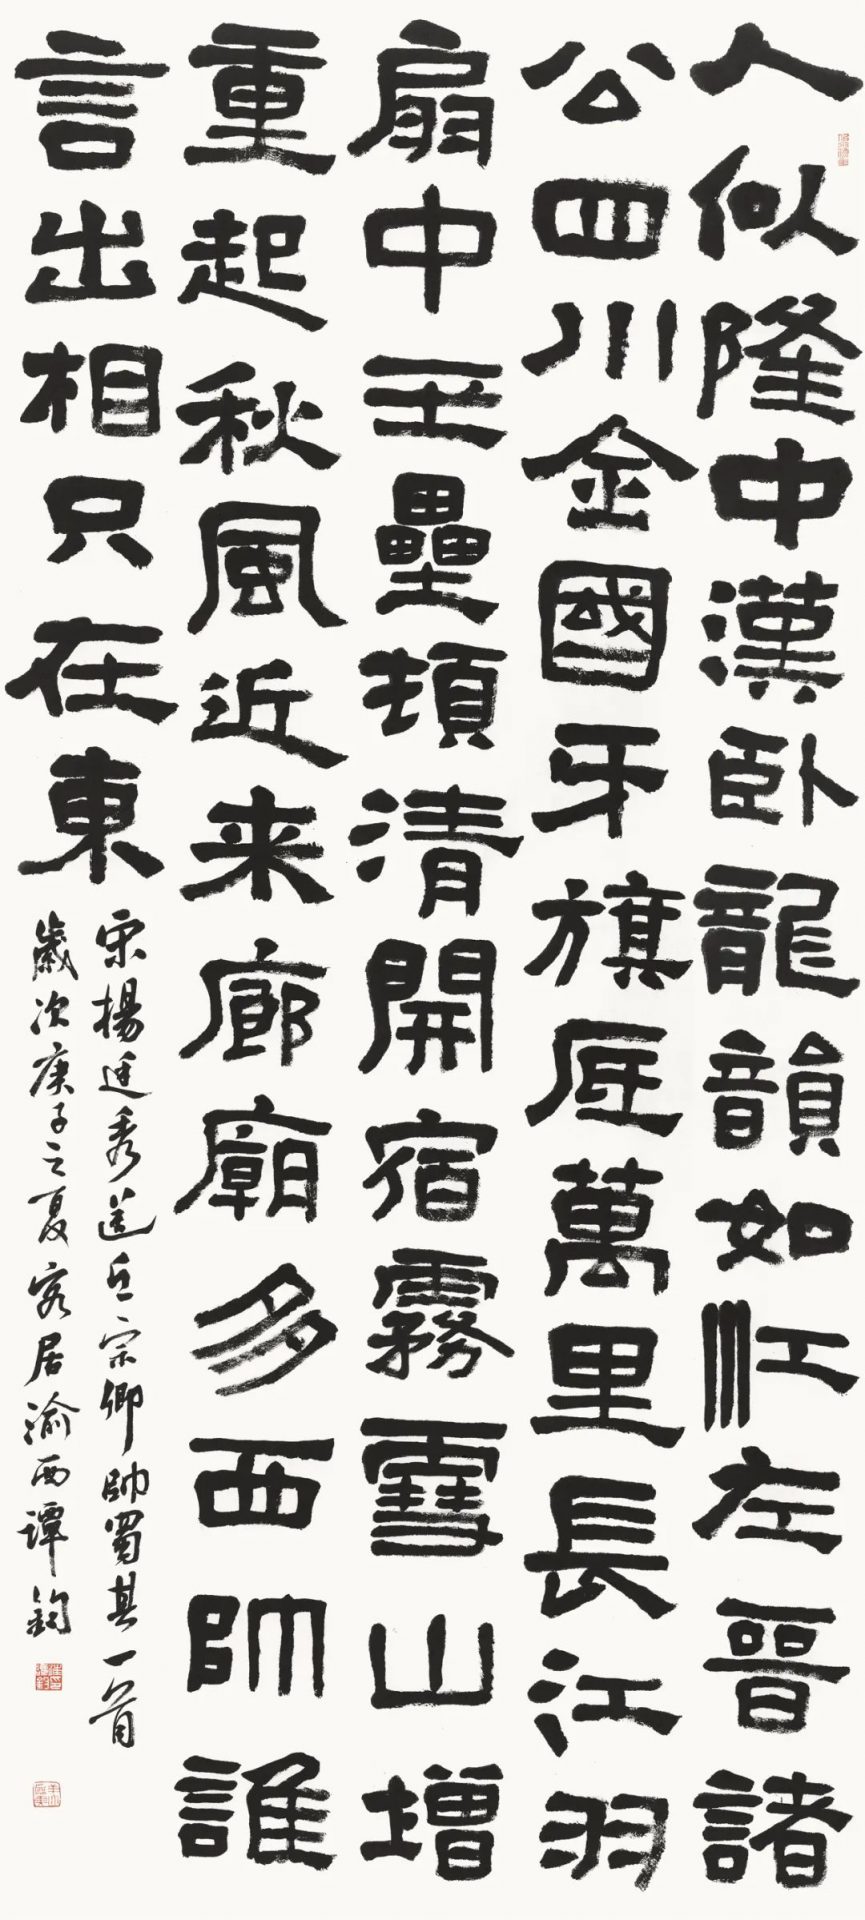 人似隆中漢卧龍韻如江左晉諸
公四川全國牙旗底萬里長江羽
扇中玉壘頓清開宿霧雪山增
重起秋風近来廊廟多西帥誰
言出相只在東
宋楊廷秀送丘宗卿帥蜀其一首
歲次庚子之夏客居渝西譚鈞